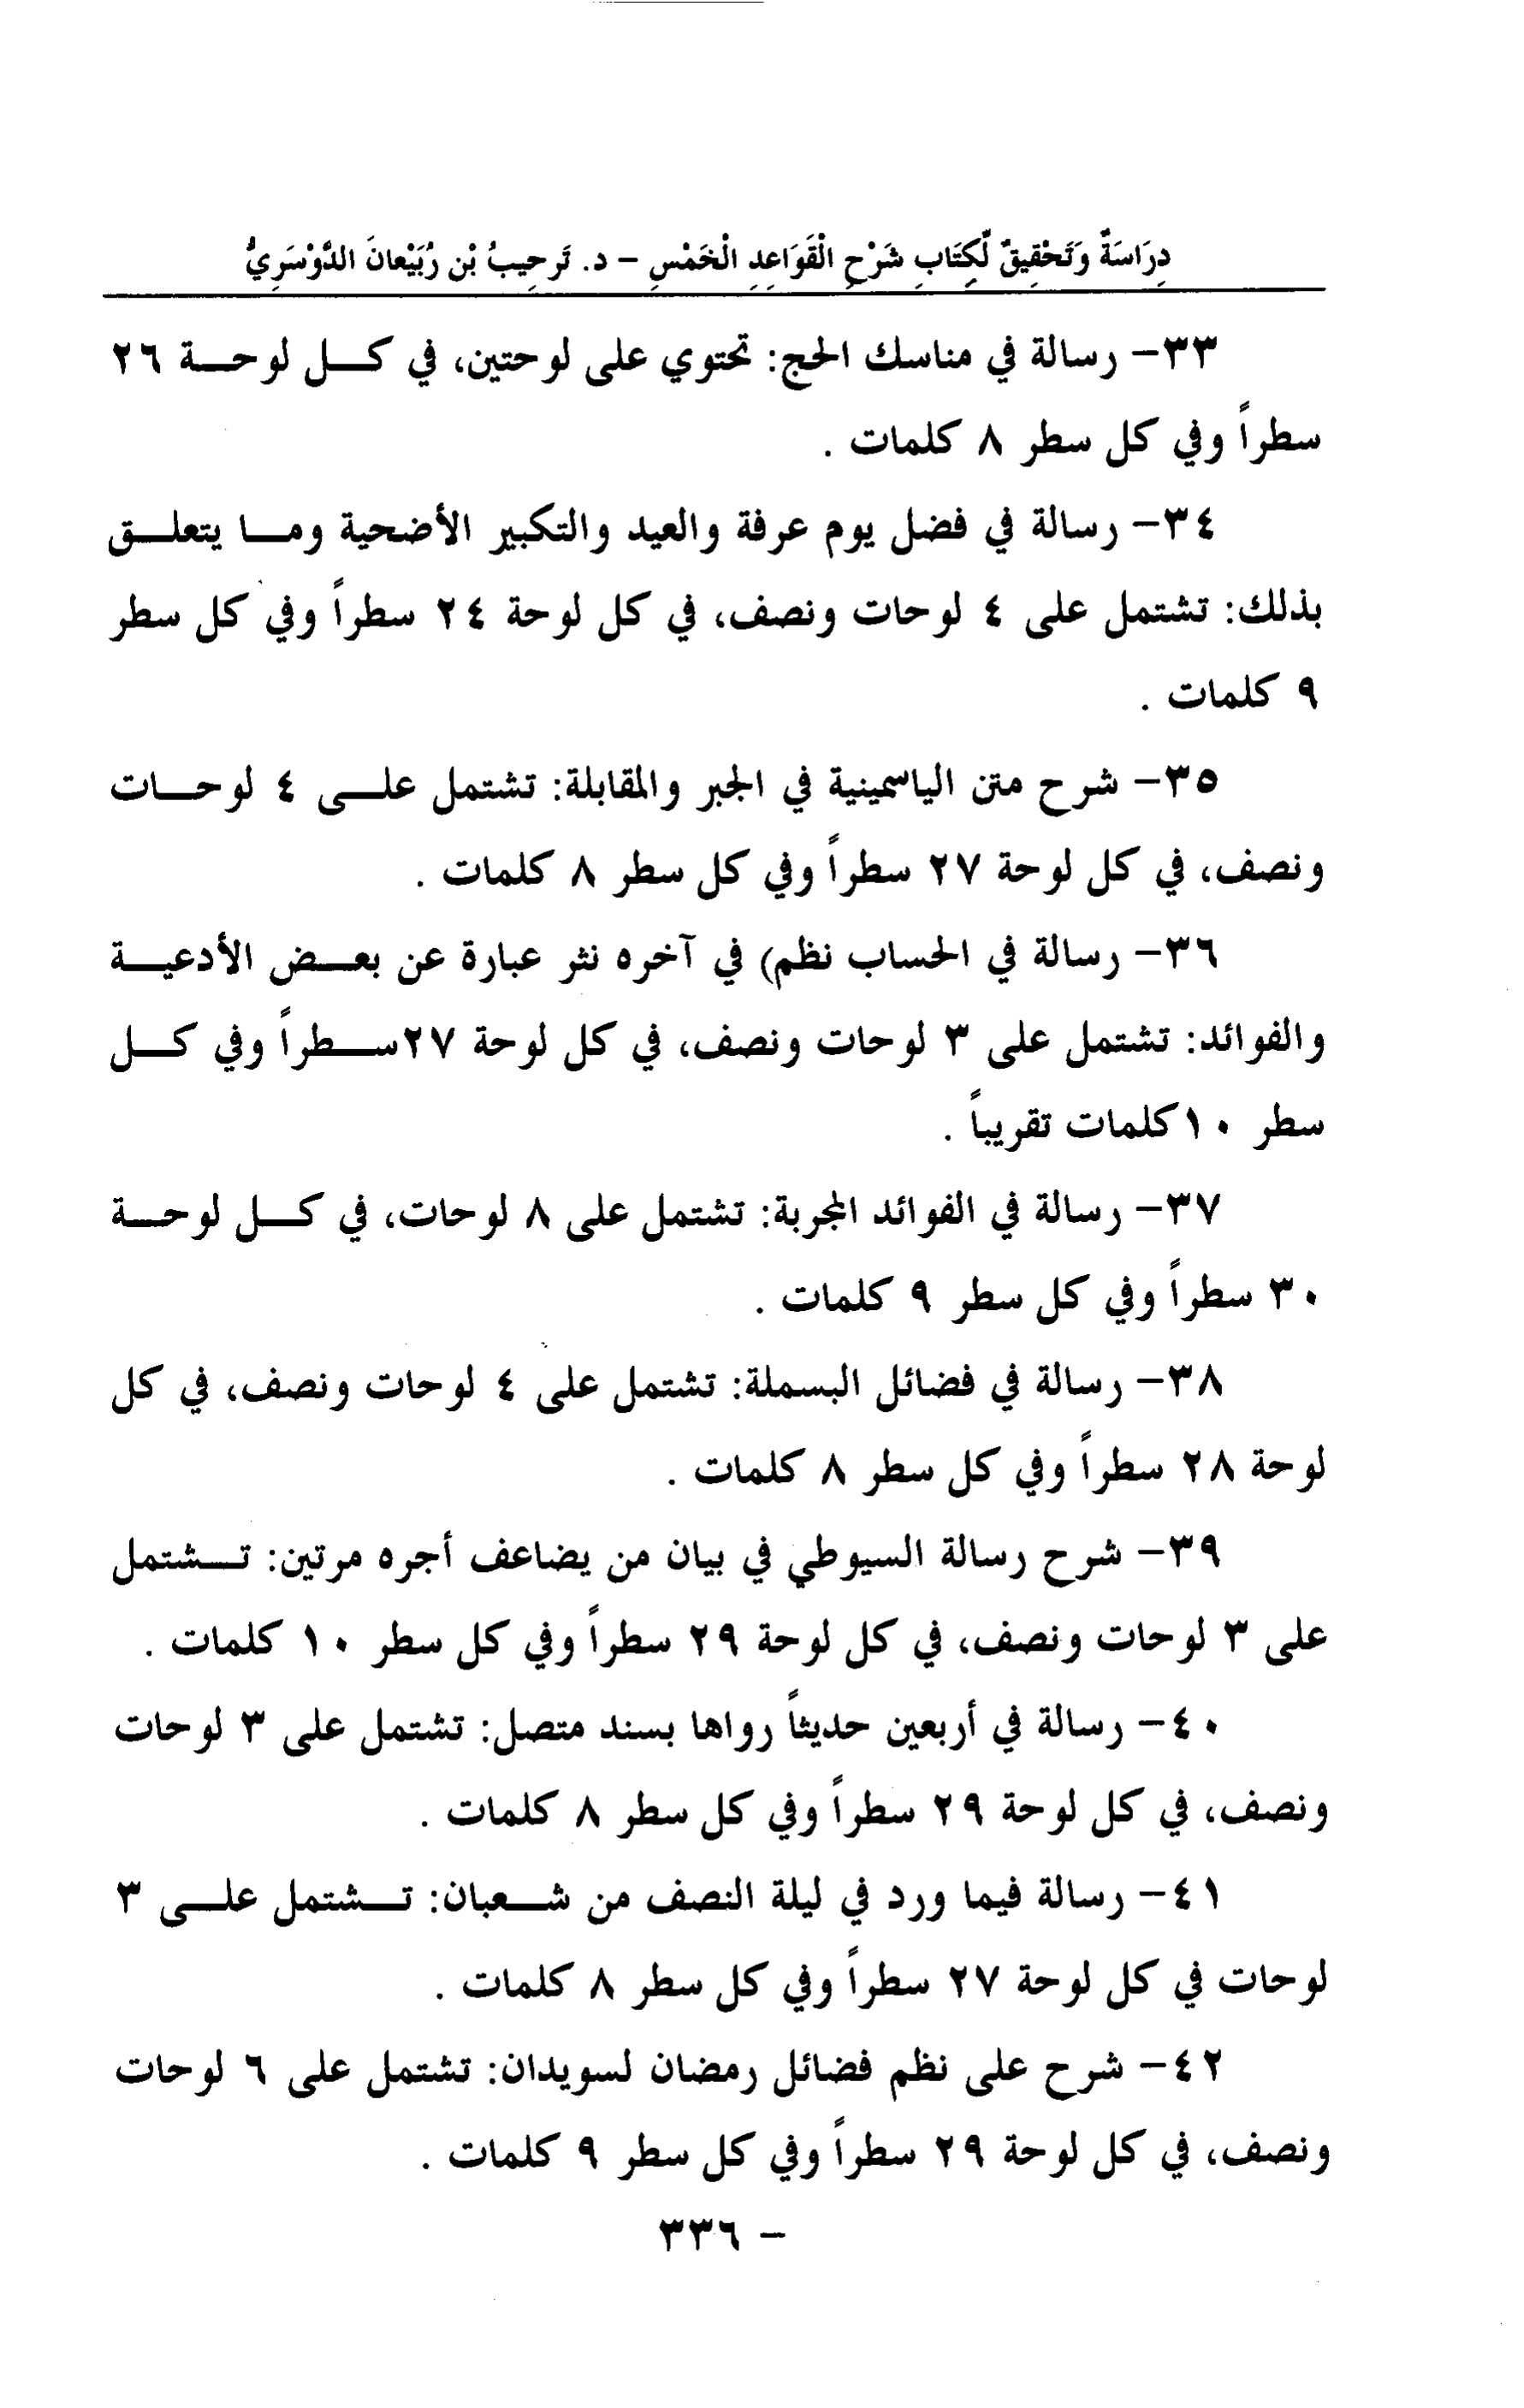 دِرَاسَةٌ وَتَحْقِيقٌ لِّكِتَابِ شَرْحِ الْقَوَاعِدِ الْخَمْسِ – د. تَرحِيبُ بْن رُبَيْعانَ الدَّوْسَرِيُّ
٣٣– رسالة في مناسك الحج: تحتوي على لوحتين، في كل لوحة ٢٦
سطراً وفي كل سطر ٨ كلمات .
٣٤– رسالة في فضل يوم عرفة والعيد والتكبير الأضحية وما يتعلق
بذلك: تشتمل على ٤ لوحات ونصف، في كل لوحة ٢٤ سطراً وفي كل سطر
٩ كلمات .
٣٥– شرح متن الياسمينية في الجبر والمقابلة: تشتمل على ٤ لوحات
ونصف، في كل لوحة ٢٧ سطراً وفي كل سطر ٨ كلمات .
٣٦– رسالة في الحساب نظم) في آخره نثر عبارة عن بعض الأدعية
والفوائد: تشتمل على ٣ لوحات ونصف، في كل لوحة ٢٧سطراً وفي كل
سطر ١٠كلمات تقريباً .
٣٧– رسالة في الفوائد المجربة: تشتمل على ٨ لوحات، في كل لوحة
٣٠ سطراً وفي كل سطر ٩ كلمات .
٣٨– رسالة في فضائل البسملة: تشتمل على ٤ لوحات ونصف، في كل
لوحة ٢٨ سطراً وفي كل سطر ٨ كلمات .
٣٩– شرح رسالة السيوطي في بيان من يضاعف أجره مرتين: تشتمل
على ٣ لوحات ونصف، في كل لوحة ٢٩ سطراً وفي كل سطر ١٠ كلمات .
٤٠– رسالة في أربعين حديثاً رواها بسند متصل: تشتمل على ٣ لوحات
ونصف، في كل لوحة ٢٩ سطراً وفي كل سطر ٨ كلمات .
٤١– رسالة فيما ورد في ليلة النصف من شعبان: تشتمل على ٣
لوحات في كل لوحة ٢٧ سطراً وفي كل سطر ٨ كلمات .
٤٢– شرح على نظم فضائل رمضان لسويدان: تشتمل على ٦ لوحات
ونصف، في كل لوحة ٢٩ سطراً وفي كل سطر ٩ كلمات .
– ٣٣٦